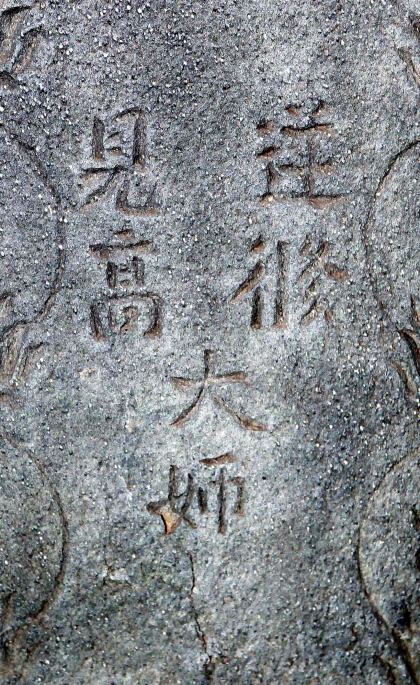 逆修
見高
大姉